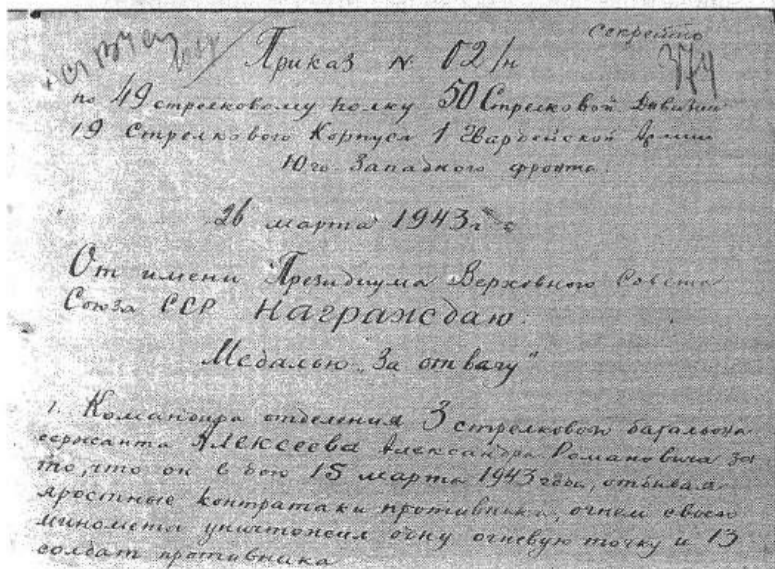 Секретно
374
Приказ № 02/н
по 49 стрелковому полку 50 Стрелковой Дивизии
19 Стрелкового Корпуса 1 Гвардейской Армии
Юго-Западного фронта.
26 марта 1943 г
От имени Президиума Верховного Совета
Союза ССР Награждаю:
Медалью „За отвагу"
1. Командира отделения 3 стрелкового батальона
сержанта Алексеева Александра Романовича за
то, что он в бою 15 марта 1943 года, отбивая
яростные контратаки противника, огнем своего
миномета уничтожил одну огневую точку и 13
солдат противника